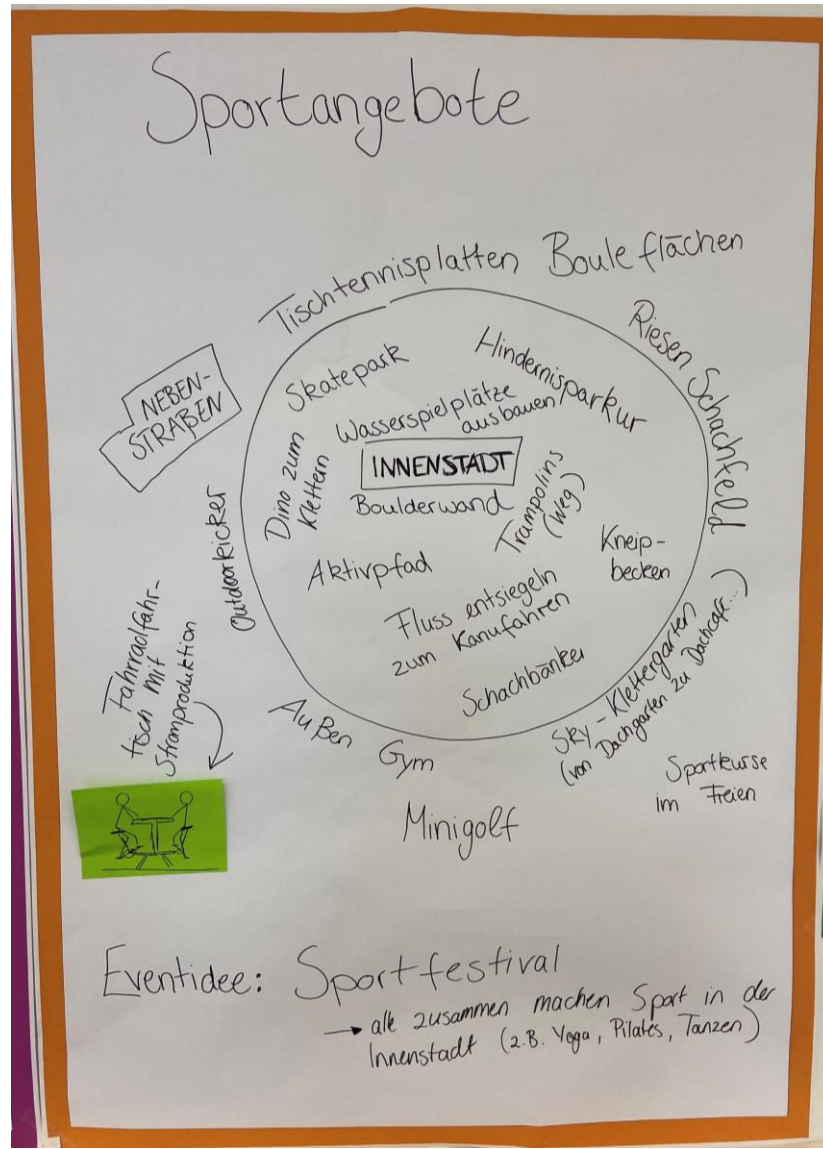 Sportangebote
Tischtennisplatten
Boule flächen
Riesen Schachfeld
NEBEN-
STRAßEN
Skatepark
Hindernisparkur
Wasserspielplätze
ausbauen
Dino zum
Klettern
INNENSTADT
Boulderwand
Trampolins
(Weg)
Outdoorkicker
Aktivpfad
Kneip-
becken
Fluss entsiegeln
zum Kanufahren
Schachbänke
Fahrradfahr-
tisch mit
Stromproduktion
Außen Gym
Sky-Klettergarten
(von Dachgarten zu Dachcafe...)
Sportkurse
im Freien
Minigolf
Eventidee: Sportfestival
→ alle zusammen machen Sport in der
Innenstadt (z.B. Yoga, Pilates, Tanzen)